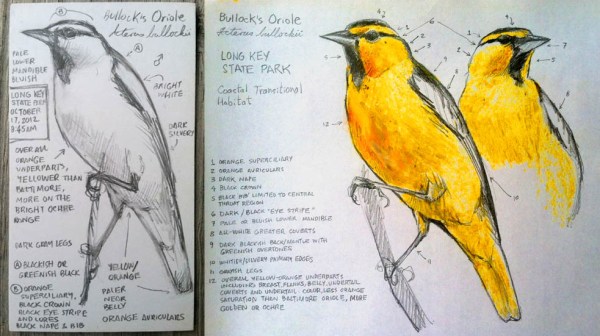 Bullock's Oriole
Icterus bullockii
A
♂
PALE
LOWER
MANDIBLE
BLUISH
BRIGHT
WHITE
LONG KEY
STATE PARK
OCTOBER
17, 2012
8:45AM
DARK
SILVERY
OVERALL
ORANGE
UNDERPARTS,
YELLOWER THAN
BALTIMORE,
MORE ON THE
BRIGHT OCHRE
RANGE
DARK GRAY LEGS
A BLACKISH OR
GREENISH BLACK
B ORANGE
SUPERCILIARY,
BLACK CROWN
BLACK EYE STRIPE
AND LORES
BLACK NAPE & BIB
YELLOW/
ORANGE
PALER
NEAR
BELLY
ORANGE AURICULARS
Bullock's Oriole
Icterus bullockii
LONG KEY
STATE PARK
Coastal Transitional
Habitat
1 ORANGE SUPERCILIARY
2 ORANGE AURICULARS
3 DARK NAPE
4 BLACK CROWN
5 BLACK BIB LIMITED TO CENTRAL
THROAT REGION
6 DARK/BLACK "EYE STRIPE"
7 PALE OR BLUISH LOWER MANDIBLE
8 ALL-WHITE GREATER COVERTS
9 DARK BLACKISH BACK/MANTLE WITH
GREENISH OVERTONES
10 WHITISH/SILVERY PRIMARY EDGES
11 GRAYISH LEGS
12 OVERALL YELLOW-ORANGE UNDERPARTS
INCLUDING BREAST, FLANKS, BELLY, UNDERTAIL
COVERTS AND UNDERTAIL. COLOR LESS ORANGE
SATURATION THAN BALTIMORE ORIOLE, MORE
GOLDEN OR OCHRE